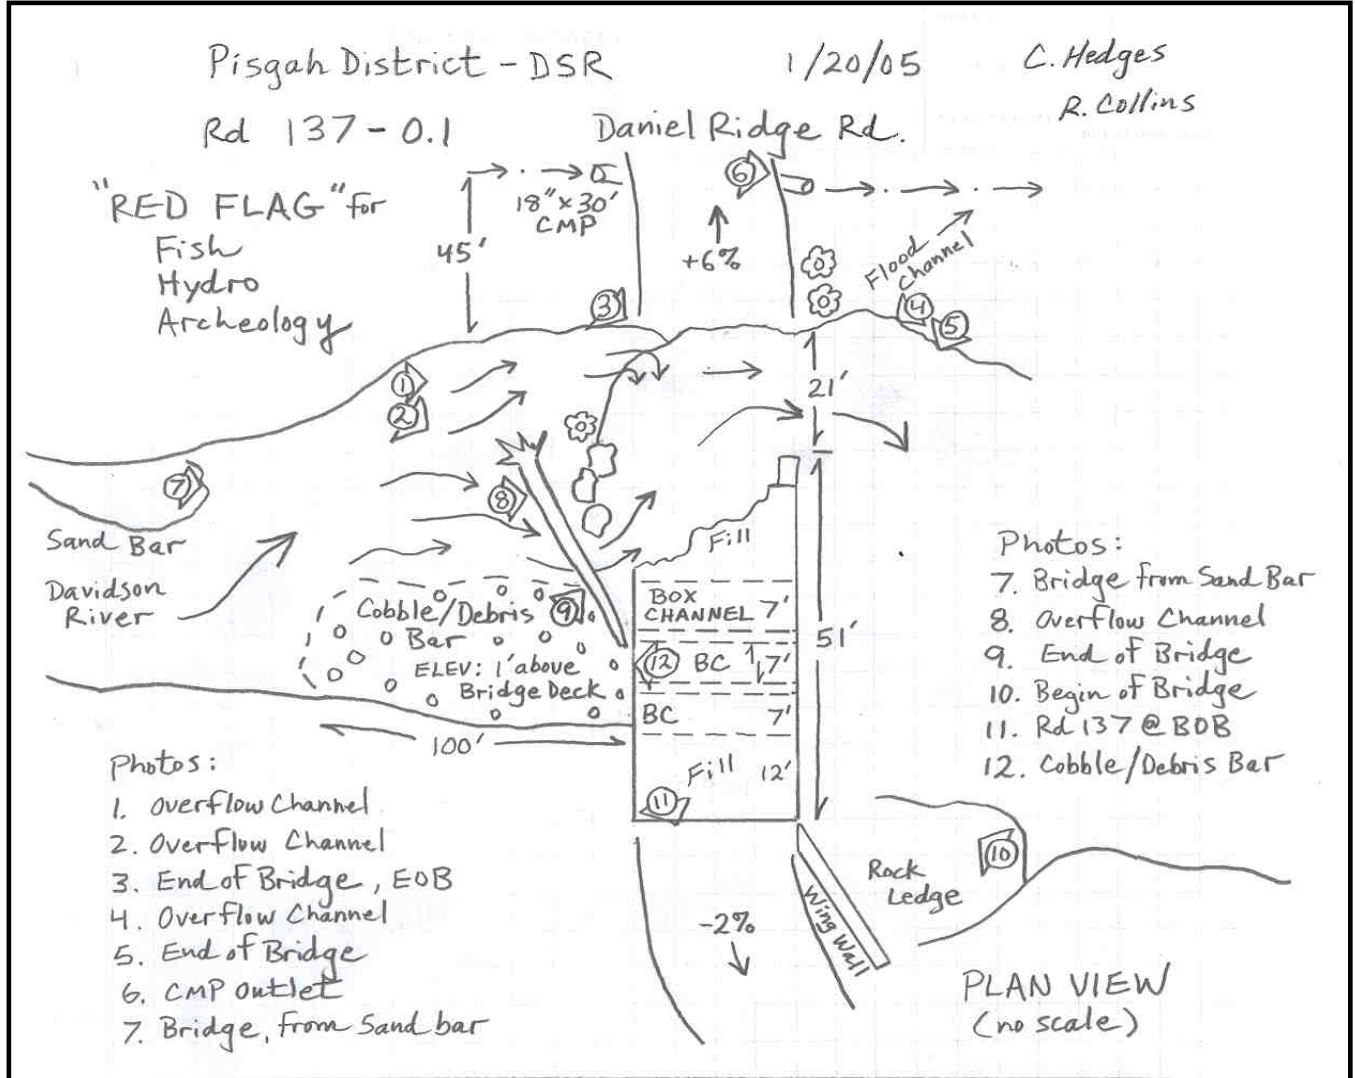 Pisgah District - DSR
1/20/05
C. Hedges
R. Collins
Rd 137-0.1
Daniel Ridge Rd.
"RED FLAG" for
Fish
Hydro
Archeology
18" x 30'
CMP
45'
+6%
6
Flood
Channel
3
4
5
1
2
21'
7
8
Sand Bar
Davidson
River
Fill
Cobble/Debris
Bar
ELEV: 1' above
Bridge Deck
9
BOX
CHANNEL 7'
12
BC 7'
BC 7'
51'
100'
Fill 12'
11
Photos:
7. Bridge from Sand Bar
8. Overflow Channel
9. End of Bridge
10. Begin of Bridge
11. Rd 137 @ BOB
12. Cobble/Debris Bar
Photos:
1. Overflow Channel
2. Overflow Channel
3. End of Bridge, EOB
4. Overflow Channel
5. End of Bridge
6. CMP outlet
7. Bridge, from Sand bar
10
Rock
Ledge
Wing Wall
-2%
PLAN VIEW
(no scale)